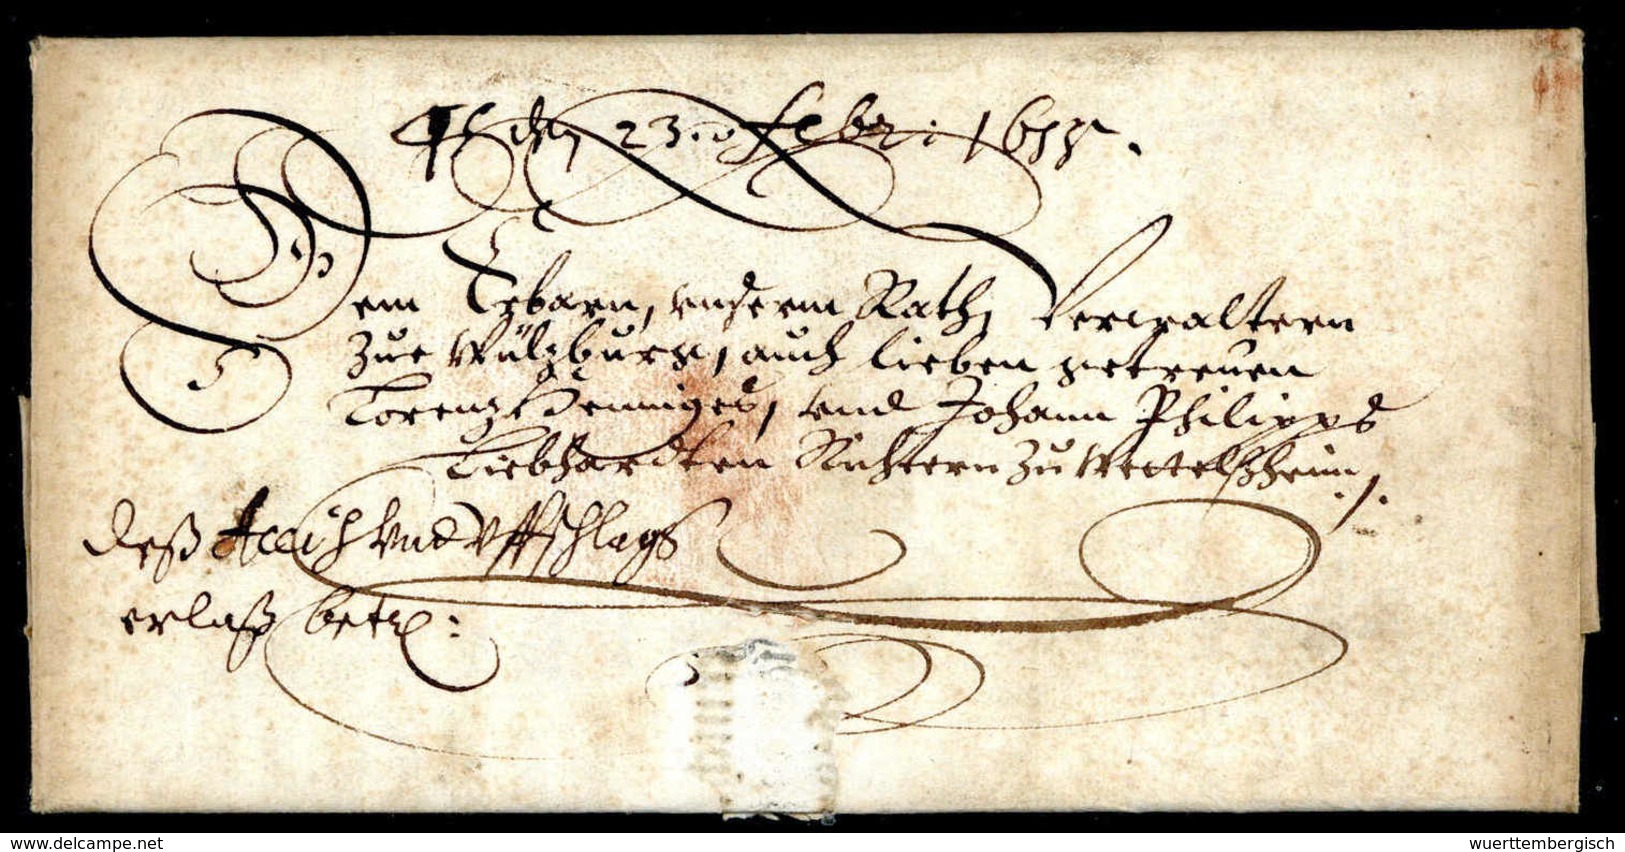 den 23. Febr: 165
Dem Erbarn, unserm Rath, Verwaltern
Zue Wültzburg, auch lieben getreuen
Lorenz Henniges, und Johann Philipps
Liebhardten Richtern Zu Weitelßheim.
deß Acciß Vnd Vffschlags
erlaß betr:
delcampe.net
wuerttembergisch